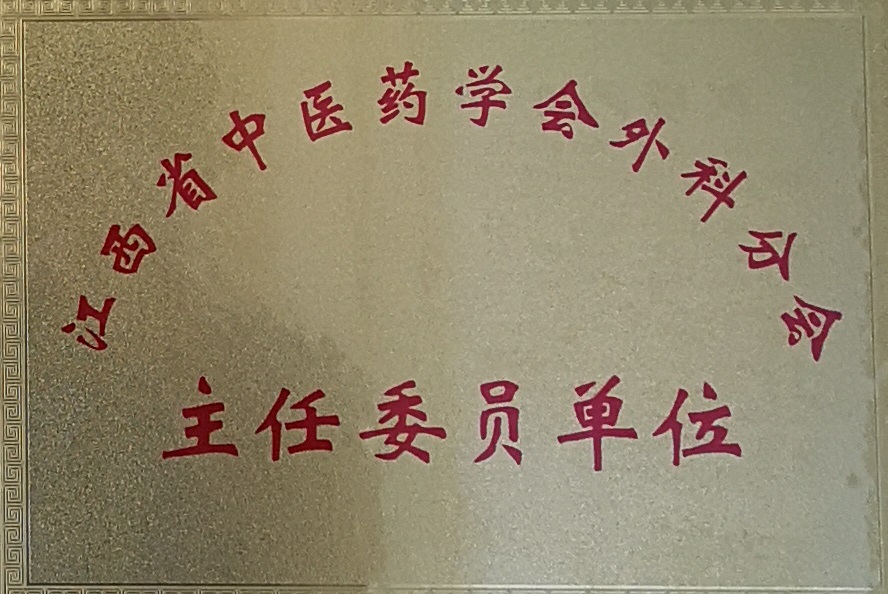 江西省中医药学会外科分会
主任委员单位